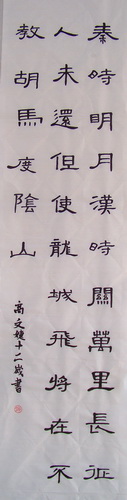 秦時明月漢時關萬里長征
人未還但使龍城飛將在不
教胡馬度陰山
高文韃十二歲書